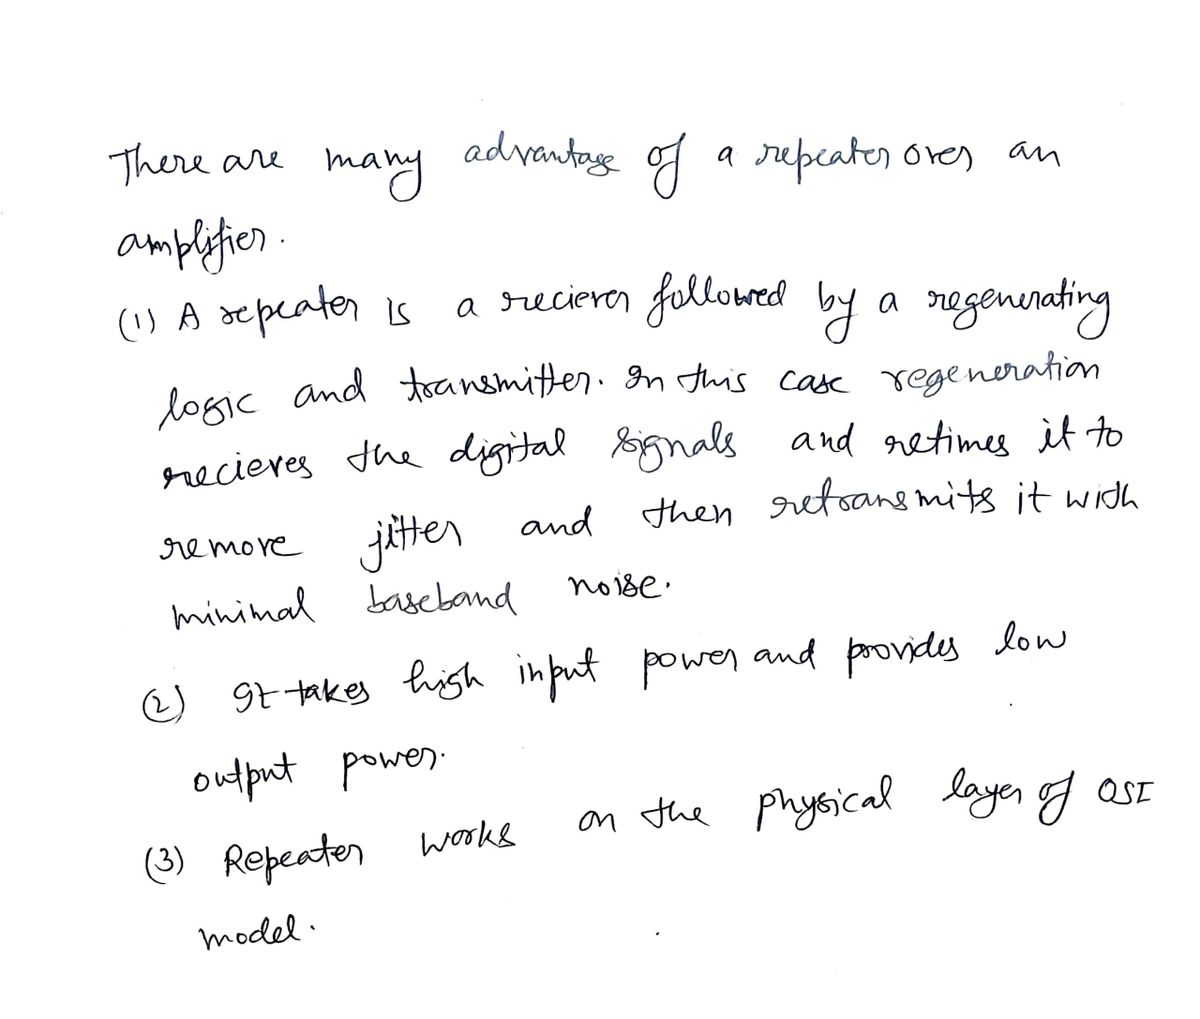 There are many advantage of a repeater over an
amplifier.
(1) A repeater is a reciever followed by a regenerating
logic and transmitter. In this case regeneration
recieves the digital signals and retimes it to
remove jitter and then retransmits it with
minimal baseband noise.
(2) It takes high input power and provides low
output power.
(3) Repeater works on the physical layer of OSI
model.